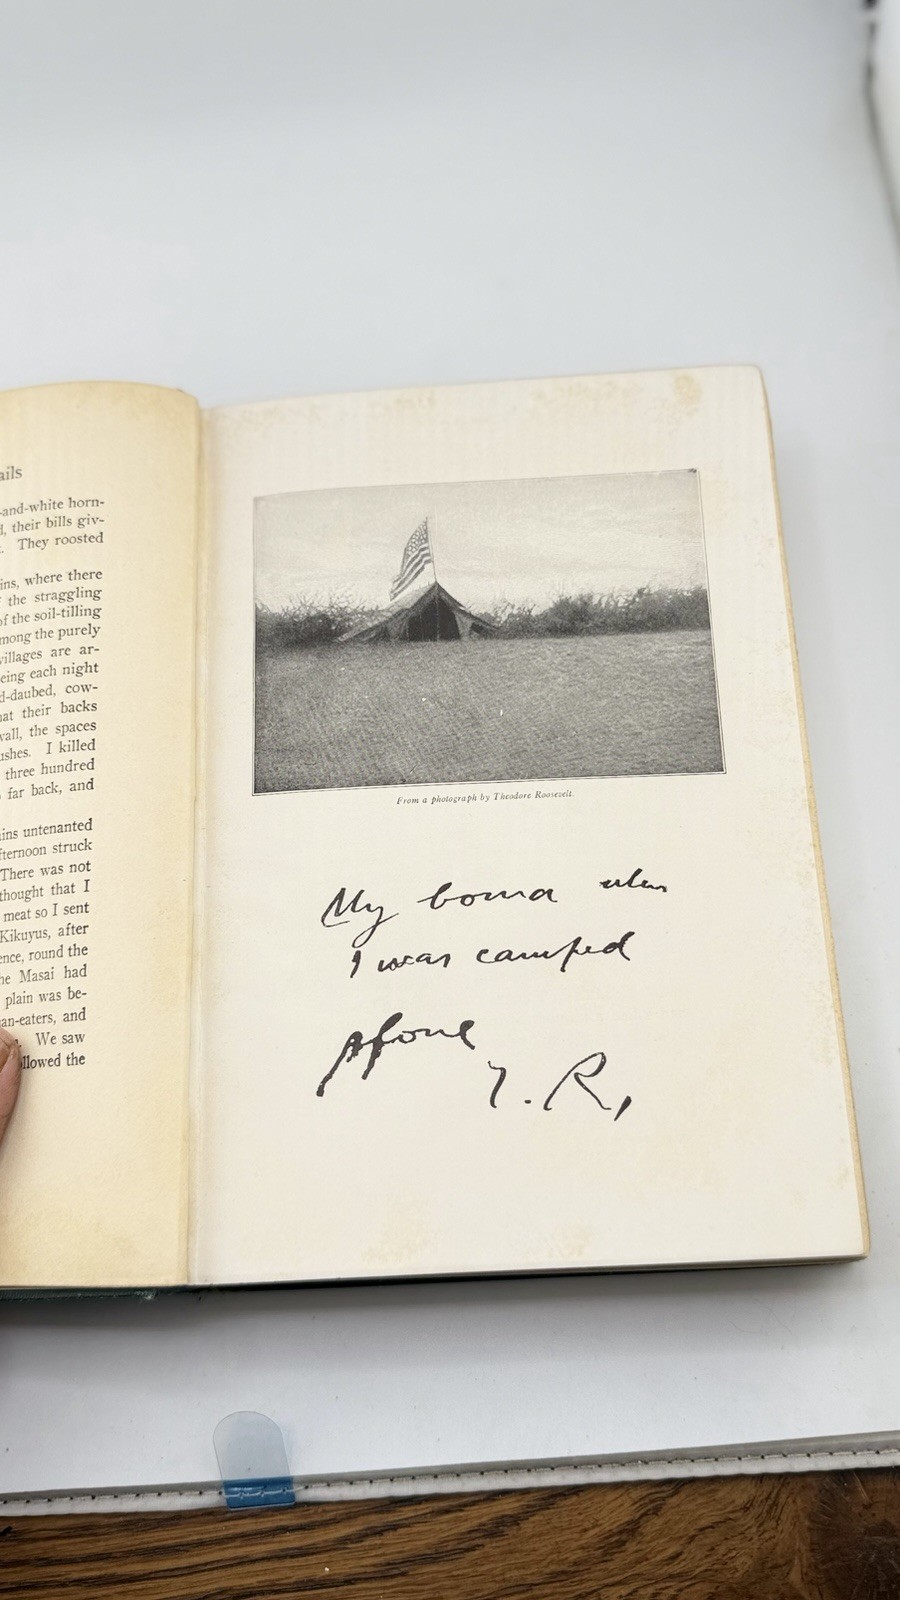 ails
-and-white horn-
, their bills giv-
They roosted
ins, where there
the straggling
of the soil-tilling
mong the purely
villages are ar-
eing each night
d-daubed, cow-
at their backs
wall, the spaces
ushes. I killed
three hundred
far back, and
ins untenanted
fternoon struck
There was not
thought that I
meat so I sent
Kikuyus, after
ence, round the
he Masai had
plain was be-
an-eaters, and
We saw
llowed the
From a photograph by Theodore Roosevelt.
My boma when
I was camped
alone
T. R.